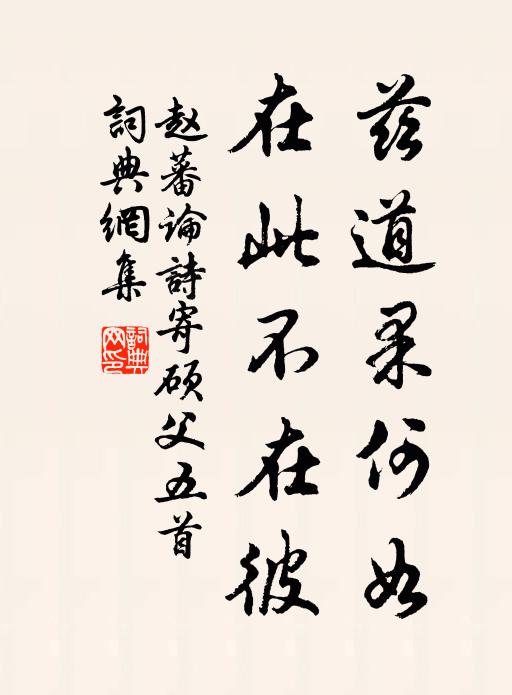 茲道果何如
在此不在彼
赵蕃論詩寄碩父五首
詞典網集
詞典网印